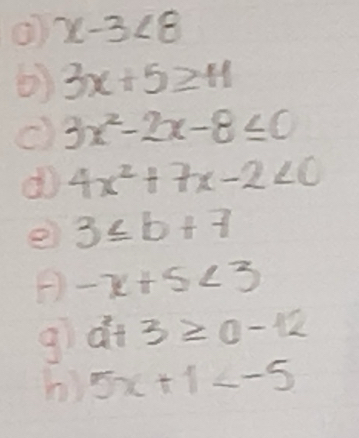 a) x-3<8
b) 3x+5≥11
c) 3x²-2x-8≤0
d) 4x²+7x-2<0
e) 3≤b+7
f) -x+5<3
g) a²+3≥0-12
h) 5x+1<-5